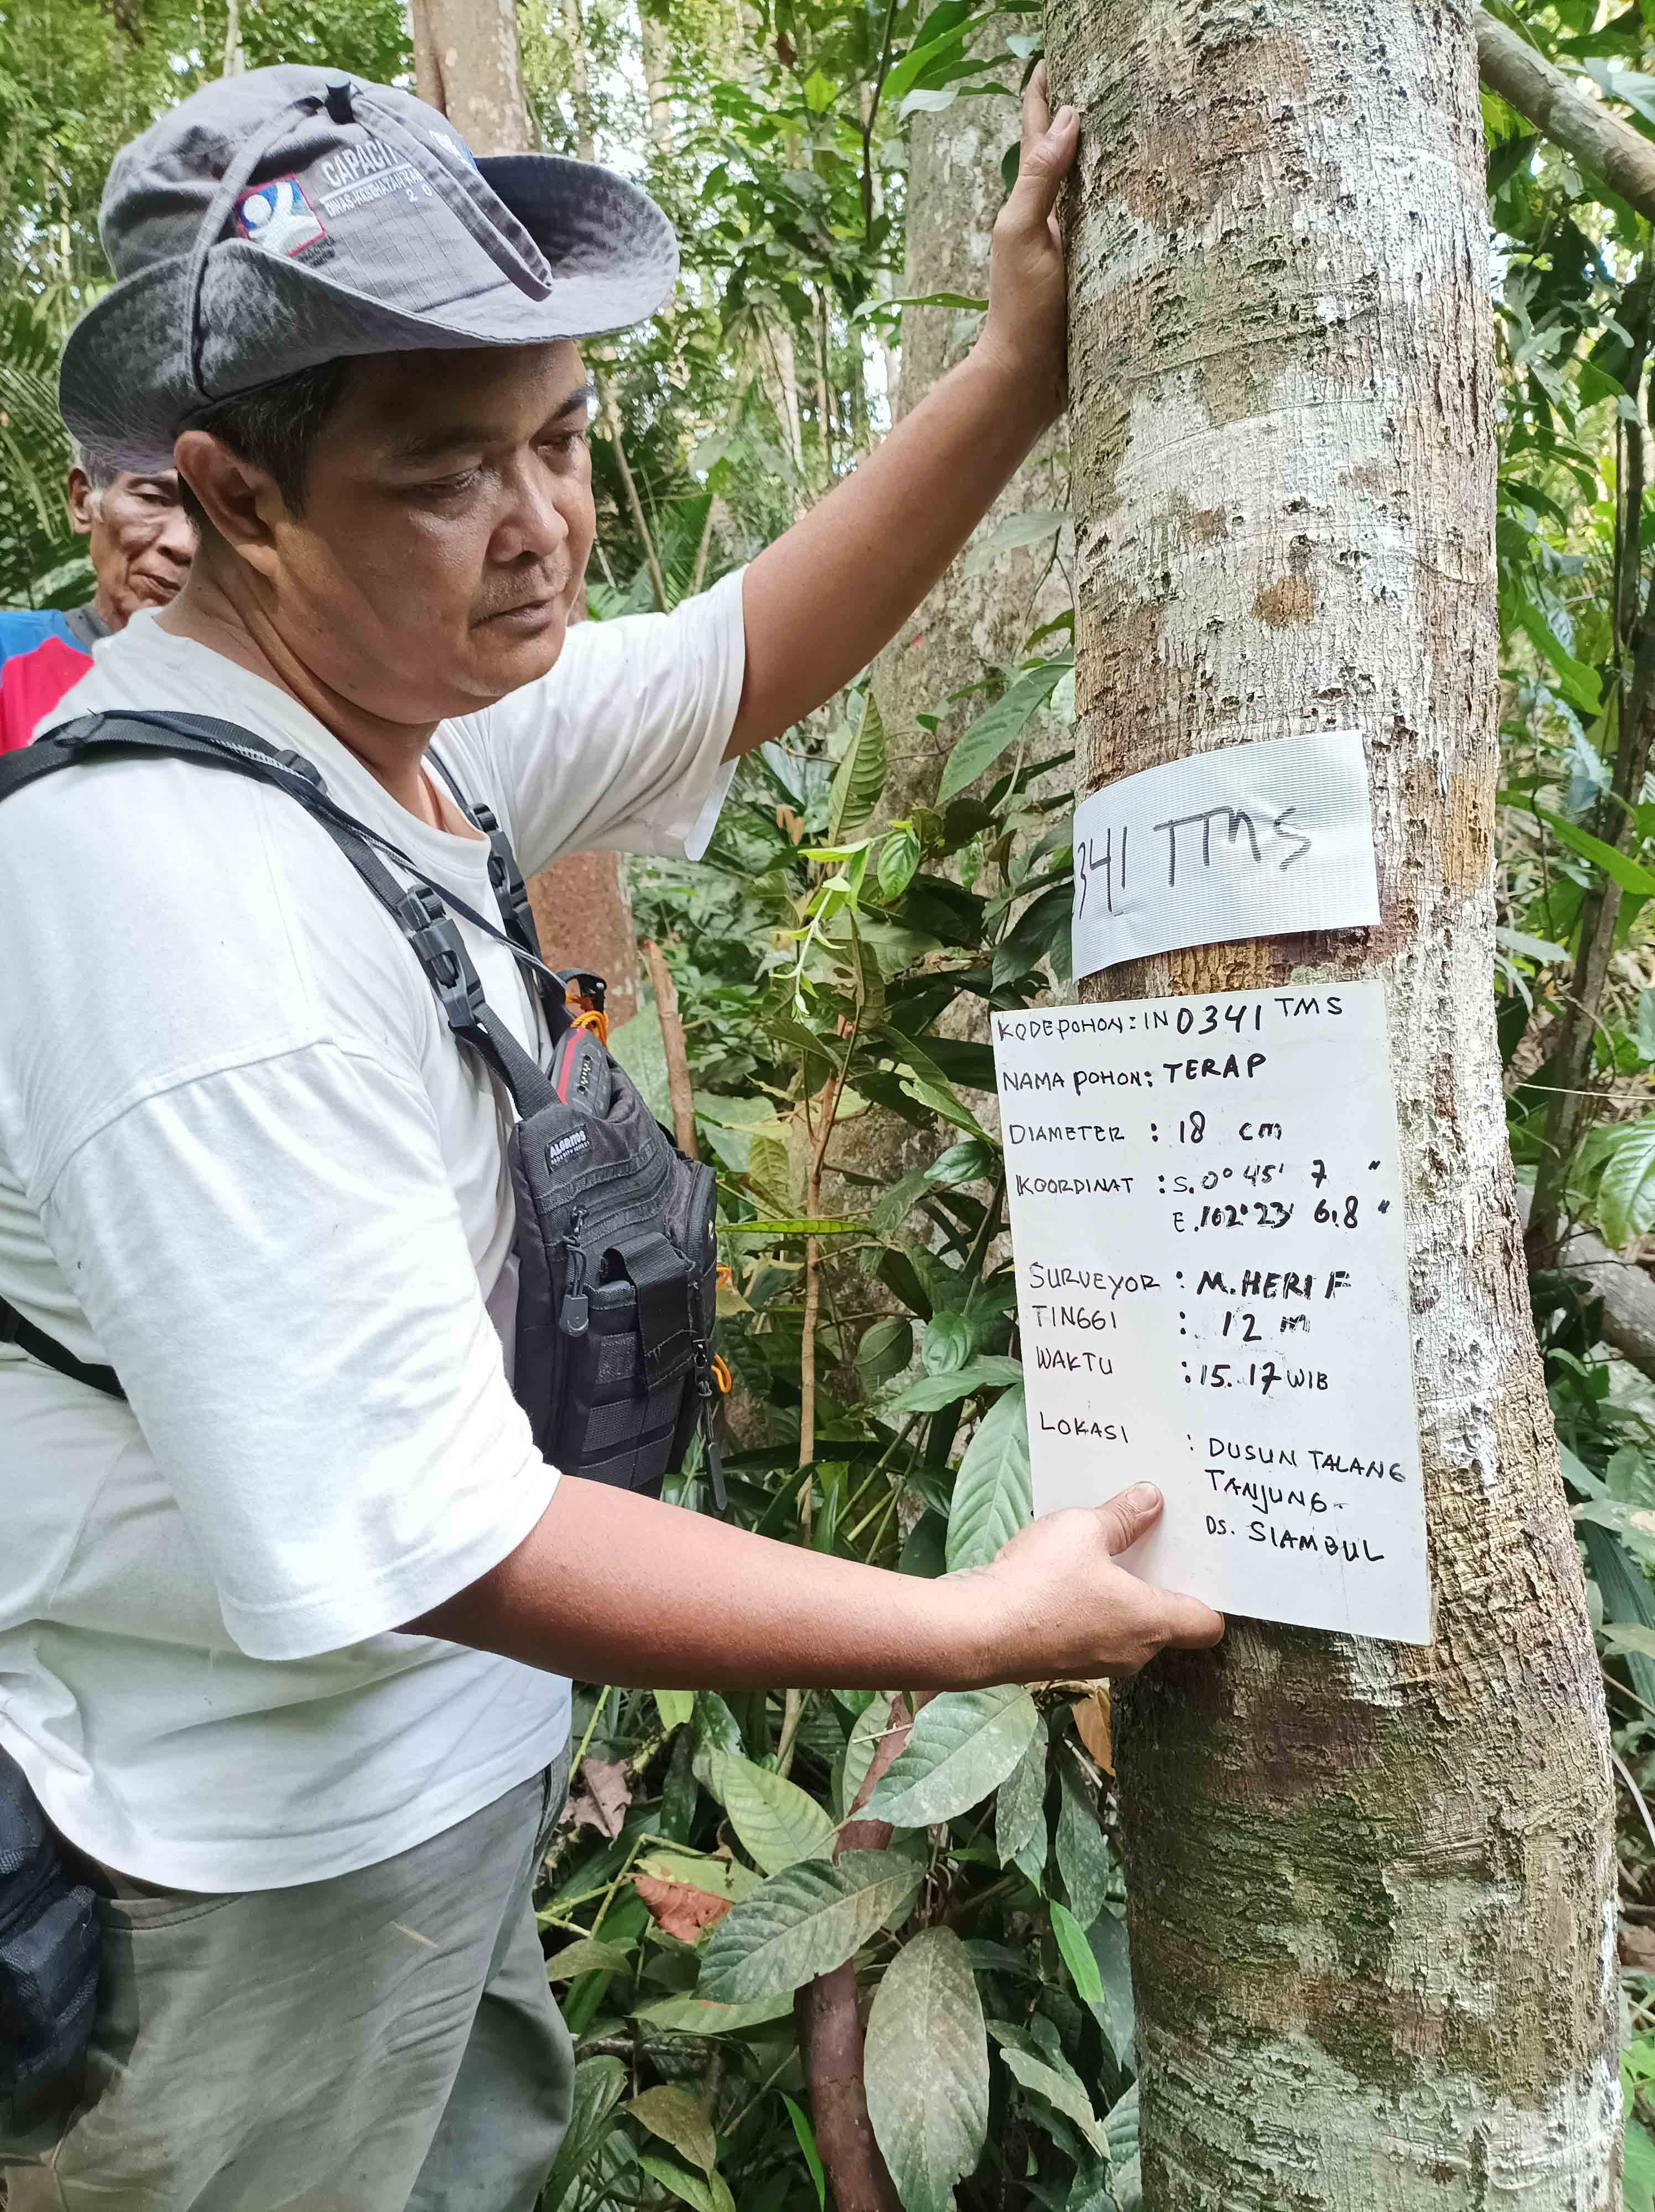 CAPACIT
DINAS KEHUTANAN
20
341 TMS
KODE POHON : IN 0341 TMS
NAMA POHON : TERAP
DIAMETER : 18 cm
KOORDINAT : S. 0° 45' 7 "
E. 102° 23' 6,8 "
SURVEYOR : M. HERI F
TINGGI : 12 m
WAKTU : 15. 17 WIB
LOKASI : DUSUN TALANG
TANJUNG -
DS. SIAMBUL